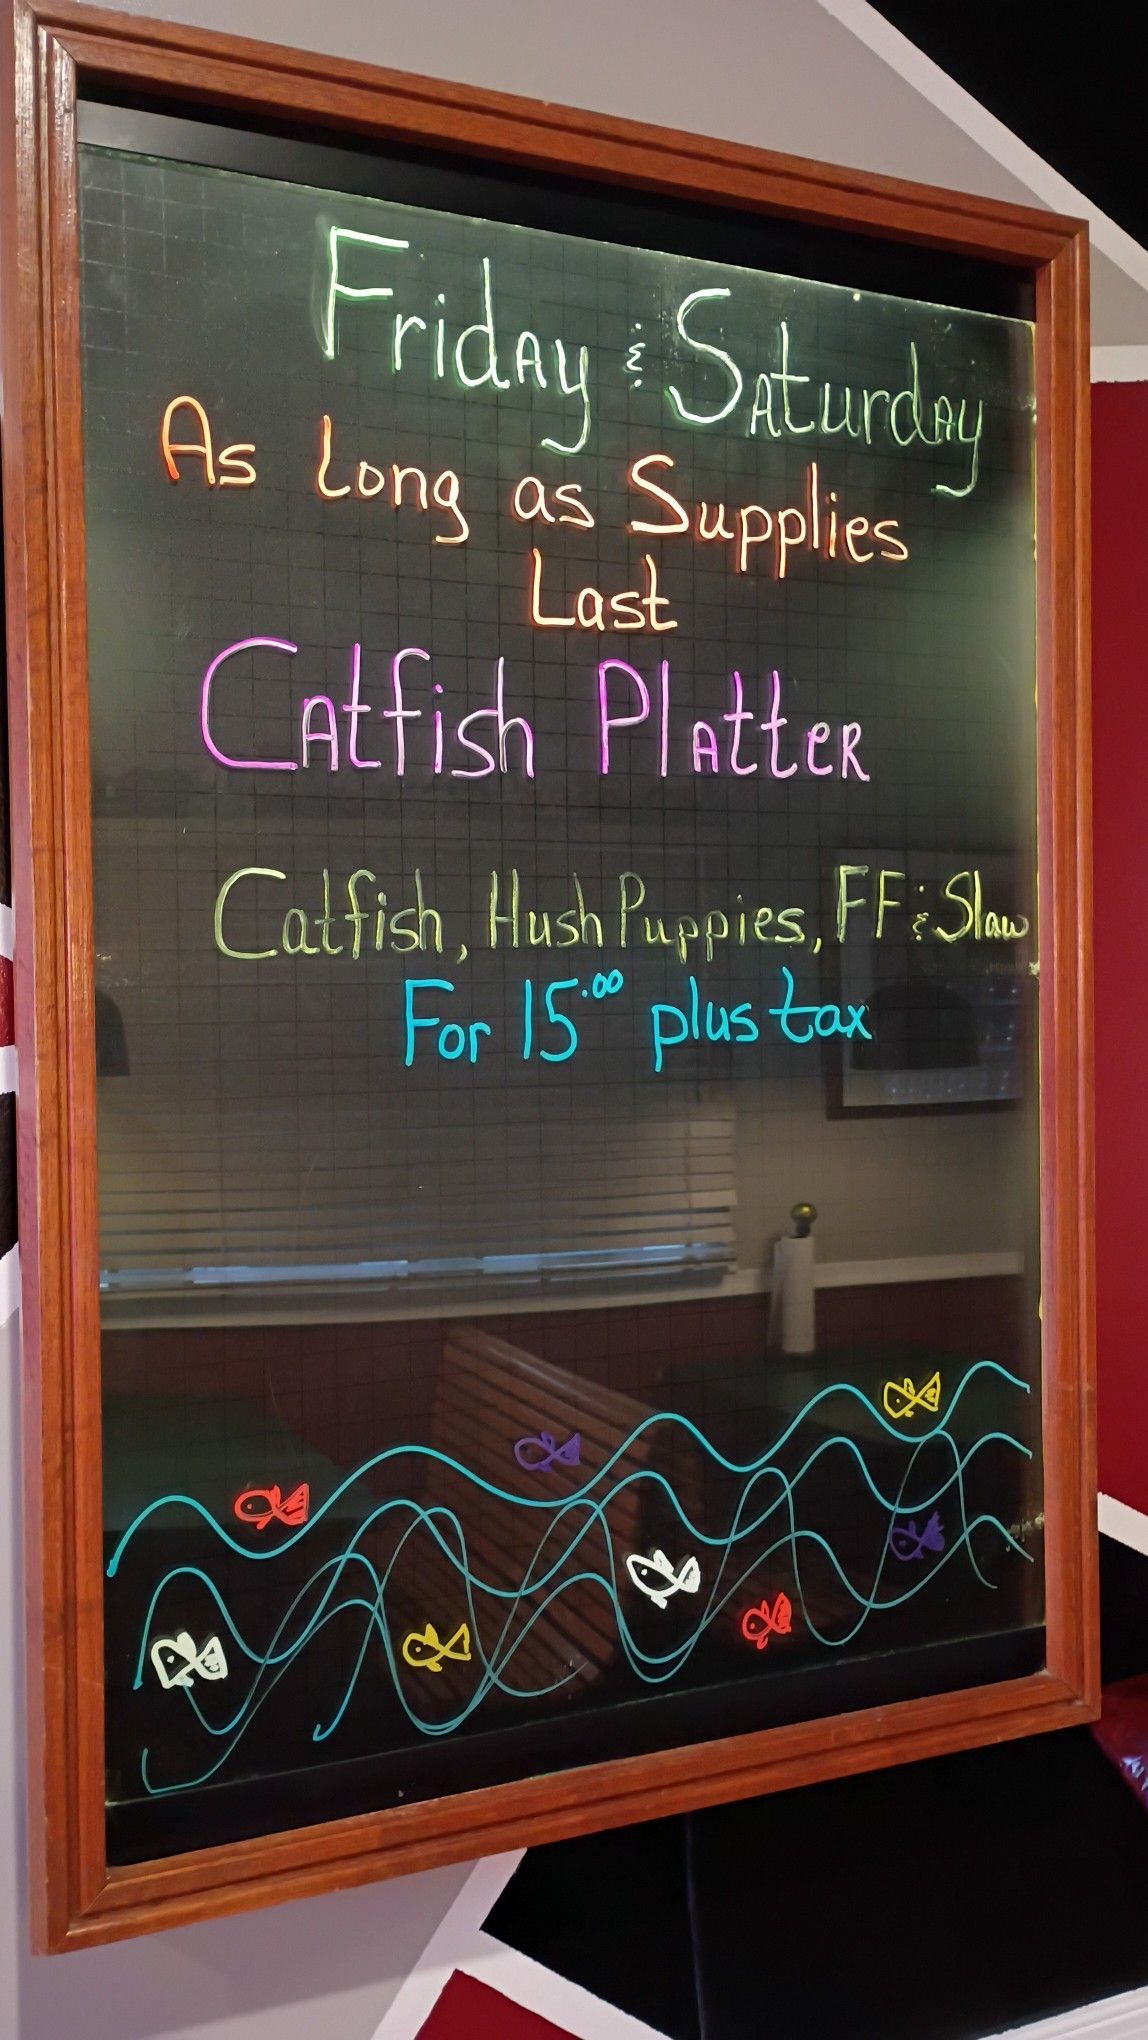 Friday & Saturday
As long as Supplies
Last
Catfish Platter
Catfish, Hush Puppies, FF & Slaw
For 15.00 plus tax